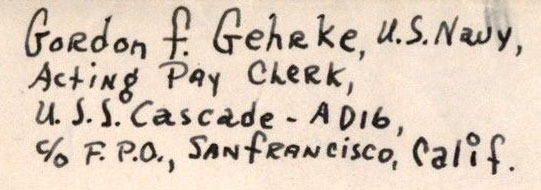 Gordon F. Gehrke, U.S. Navy,
Acting Pay Clerk,
U.S.S. Cascade - AD16,
c/o F.P.O., San Francisco, Calif.